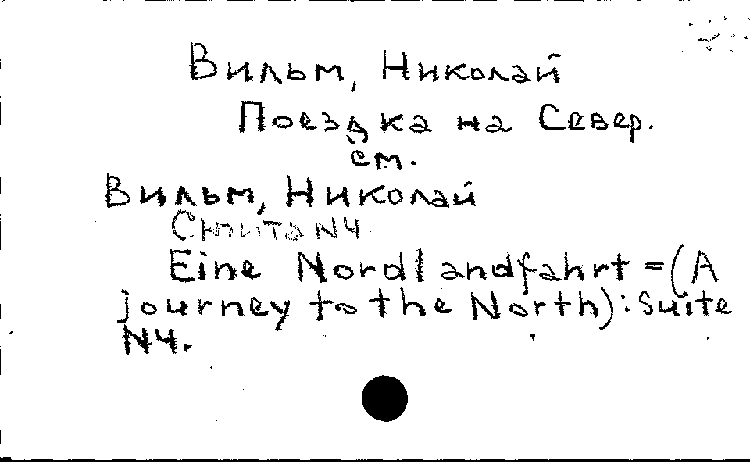 Вильм, Николай
Поездка на Север.
см.
Вильм, Николай
Сюита N4
Eine Nordlandfahrt = (A
journey to the North): Suite
N4.